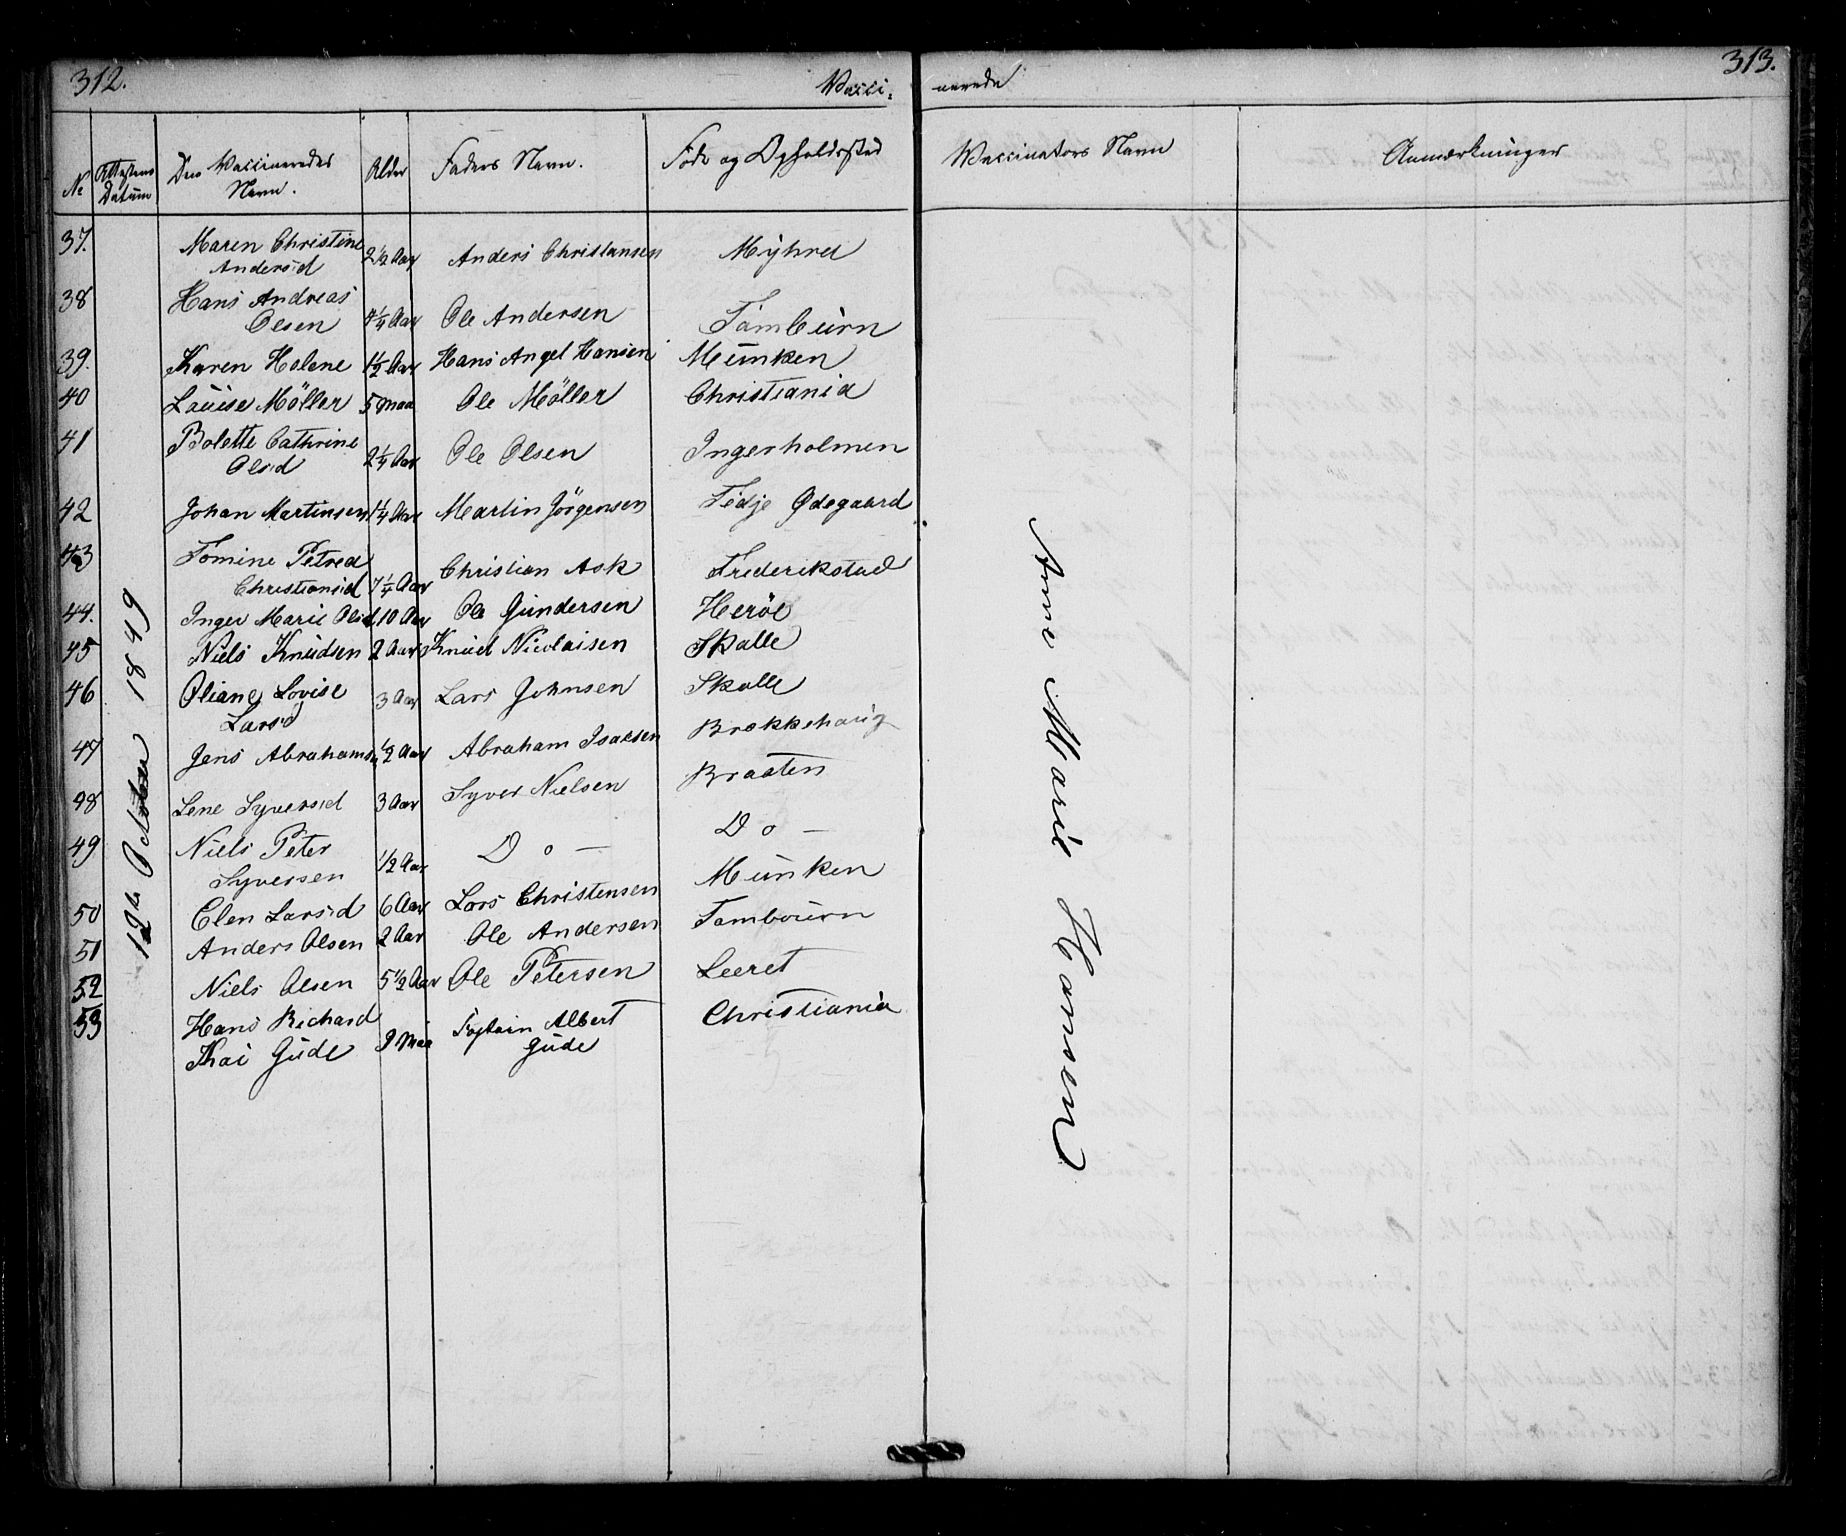 312. Vacci- nerede 313.
No Attestens Datum Den Vaccineredes Navn. Alder Faders Navn. Føde og Opholdssted Vaccinators Navn Anmærkninger
37. Maren Christine Andersd 2½ Aar Anders Christiansen Myhra
38 Hans Andreas Olsen 4¼ Aar Ole Andersen Tambùrn
39. Karen Helene 1½ Aar Hans Angel Hansen Mùnken
40 Loùise Möller 5 Maa Ole Möller Christiania
41 Bolette Cathrine Olsd 2¼ Aar Ole Olsen Ingerholmen
42 Johan Martinsen 1¼ Aar Martin Jörgensen Tedje Ødegaard
43 Tomine Petrea Christiansd 7¼ Aar Christian Ask Frederikstad
44. Inger Marie Olsd 10 Aar Ole Gùndersen Heröe
45 Niels Knùdsen 2 Aar Knùd Nicolaisen Skalle
46 Oliane Lovise Larsd 3 Aar Lars Johnsen Skalle
47 Jens Abrahams ½ Aar Abraham Isacsen Brekkehaùg
48 Lene Syversd 3 Aar Syver Nielsen Braaten
49 Niels Peter Syversen ½ Aar Do — Do —
50 Elen Larsd 6 Aar Lars Christensen Mùnken
51 Anders Olsen 2 Aar Ole Andersen Tamboùrn
52 Niels Olsen 5½ Aar Ole Petersen Leeret
53 Hans Richard Thai Gùde 9 Maa Captain Albert Gùde Christiania
12te October 1849
Anne Marie Hansen